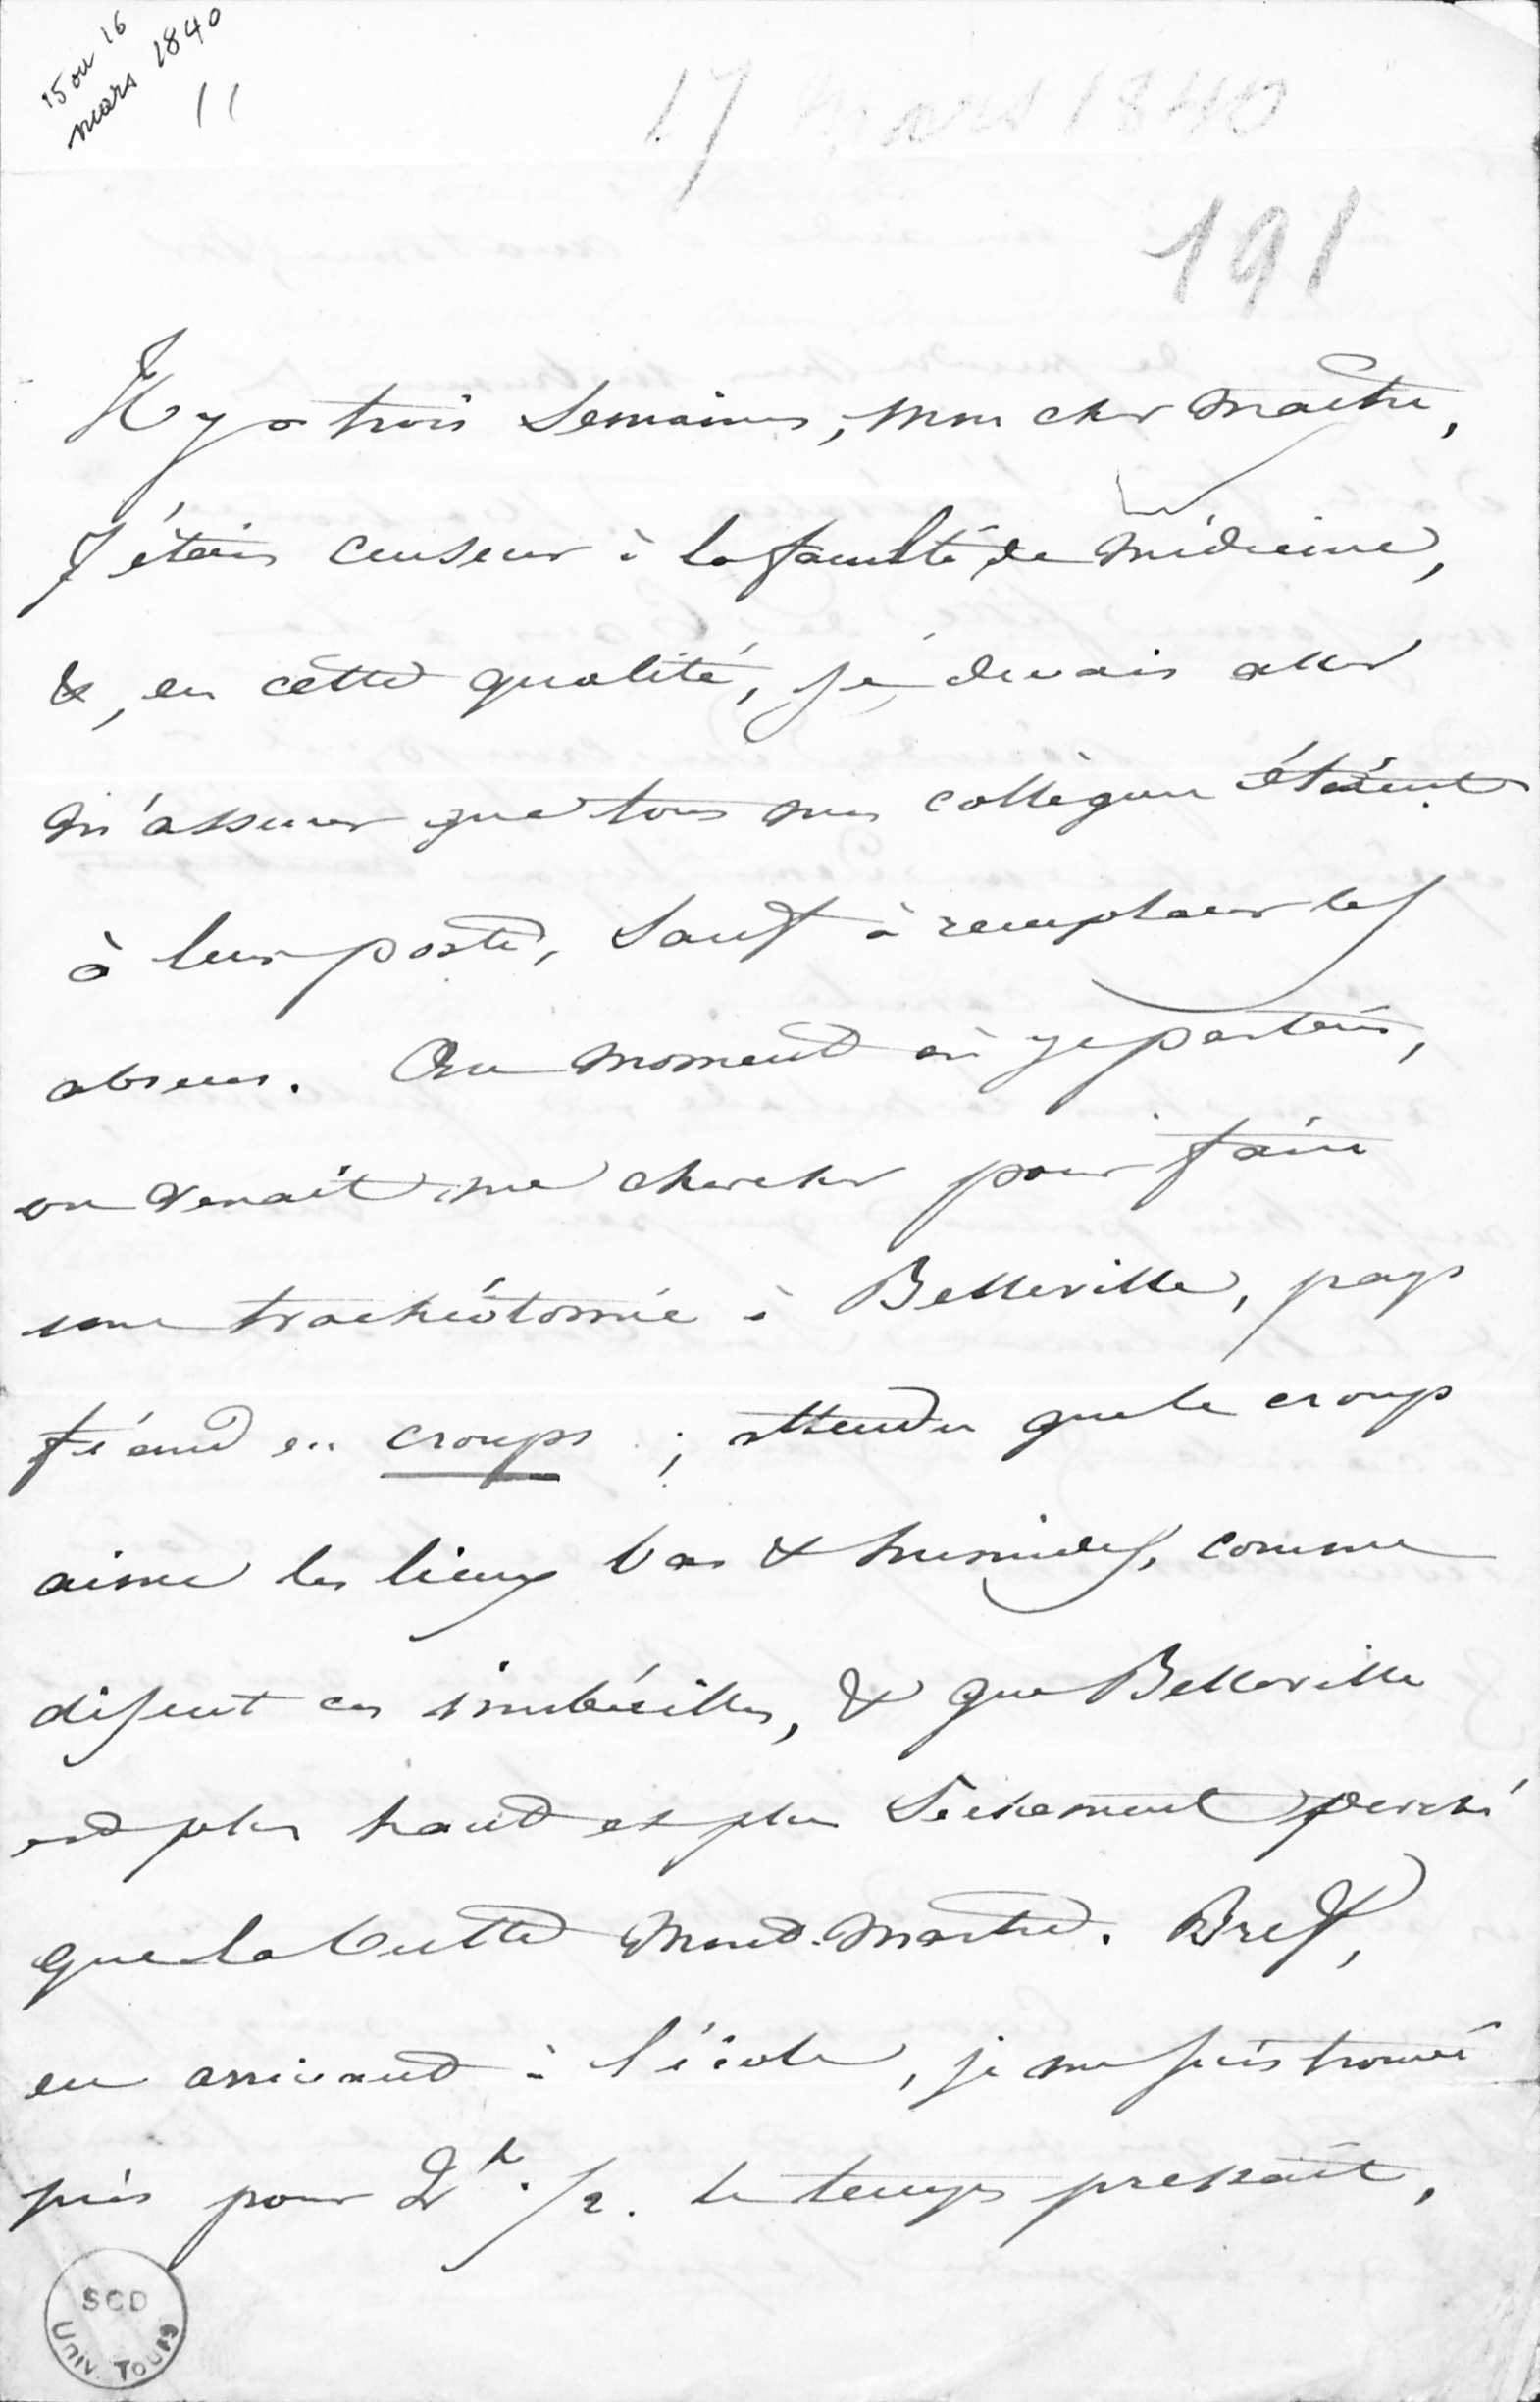 15 ou 16
mars 1840
17 mars 1840
191
Il y a trois semaines, mon cher maître,
J'étais censeur à la faculté de médecine,
&, en cette qualité, je devais aller
m'assurer que tous mes collègues étaient
à leur poste, sauf à remplacer les
absens. Au moment où je partais,
on venait me chercher pour faire
une trachéotomie à Belleville, pays
fécond en croups ; attendu que le croup
aime les lieux bas & humides, comme
disent ces imbécilles, & que Belleville
est plus haut et plus sèchement perché
que la butte Mont-Martre. Bref,
en arrivant à l'école, je me suis trouvé
pris pour 2h. 1/2. le temps pressait,
SCD
Univ. Tours